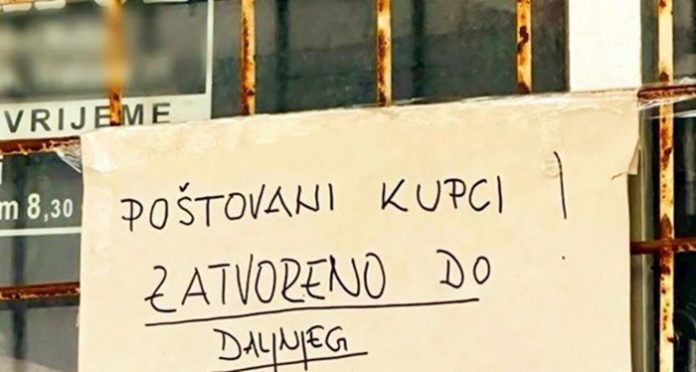 VRIJEME
m 8,30
POŠTOVANI KUPCI!
ZATVORENO DO
DALJNJEG